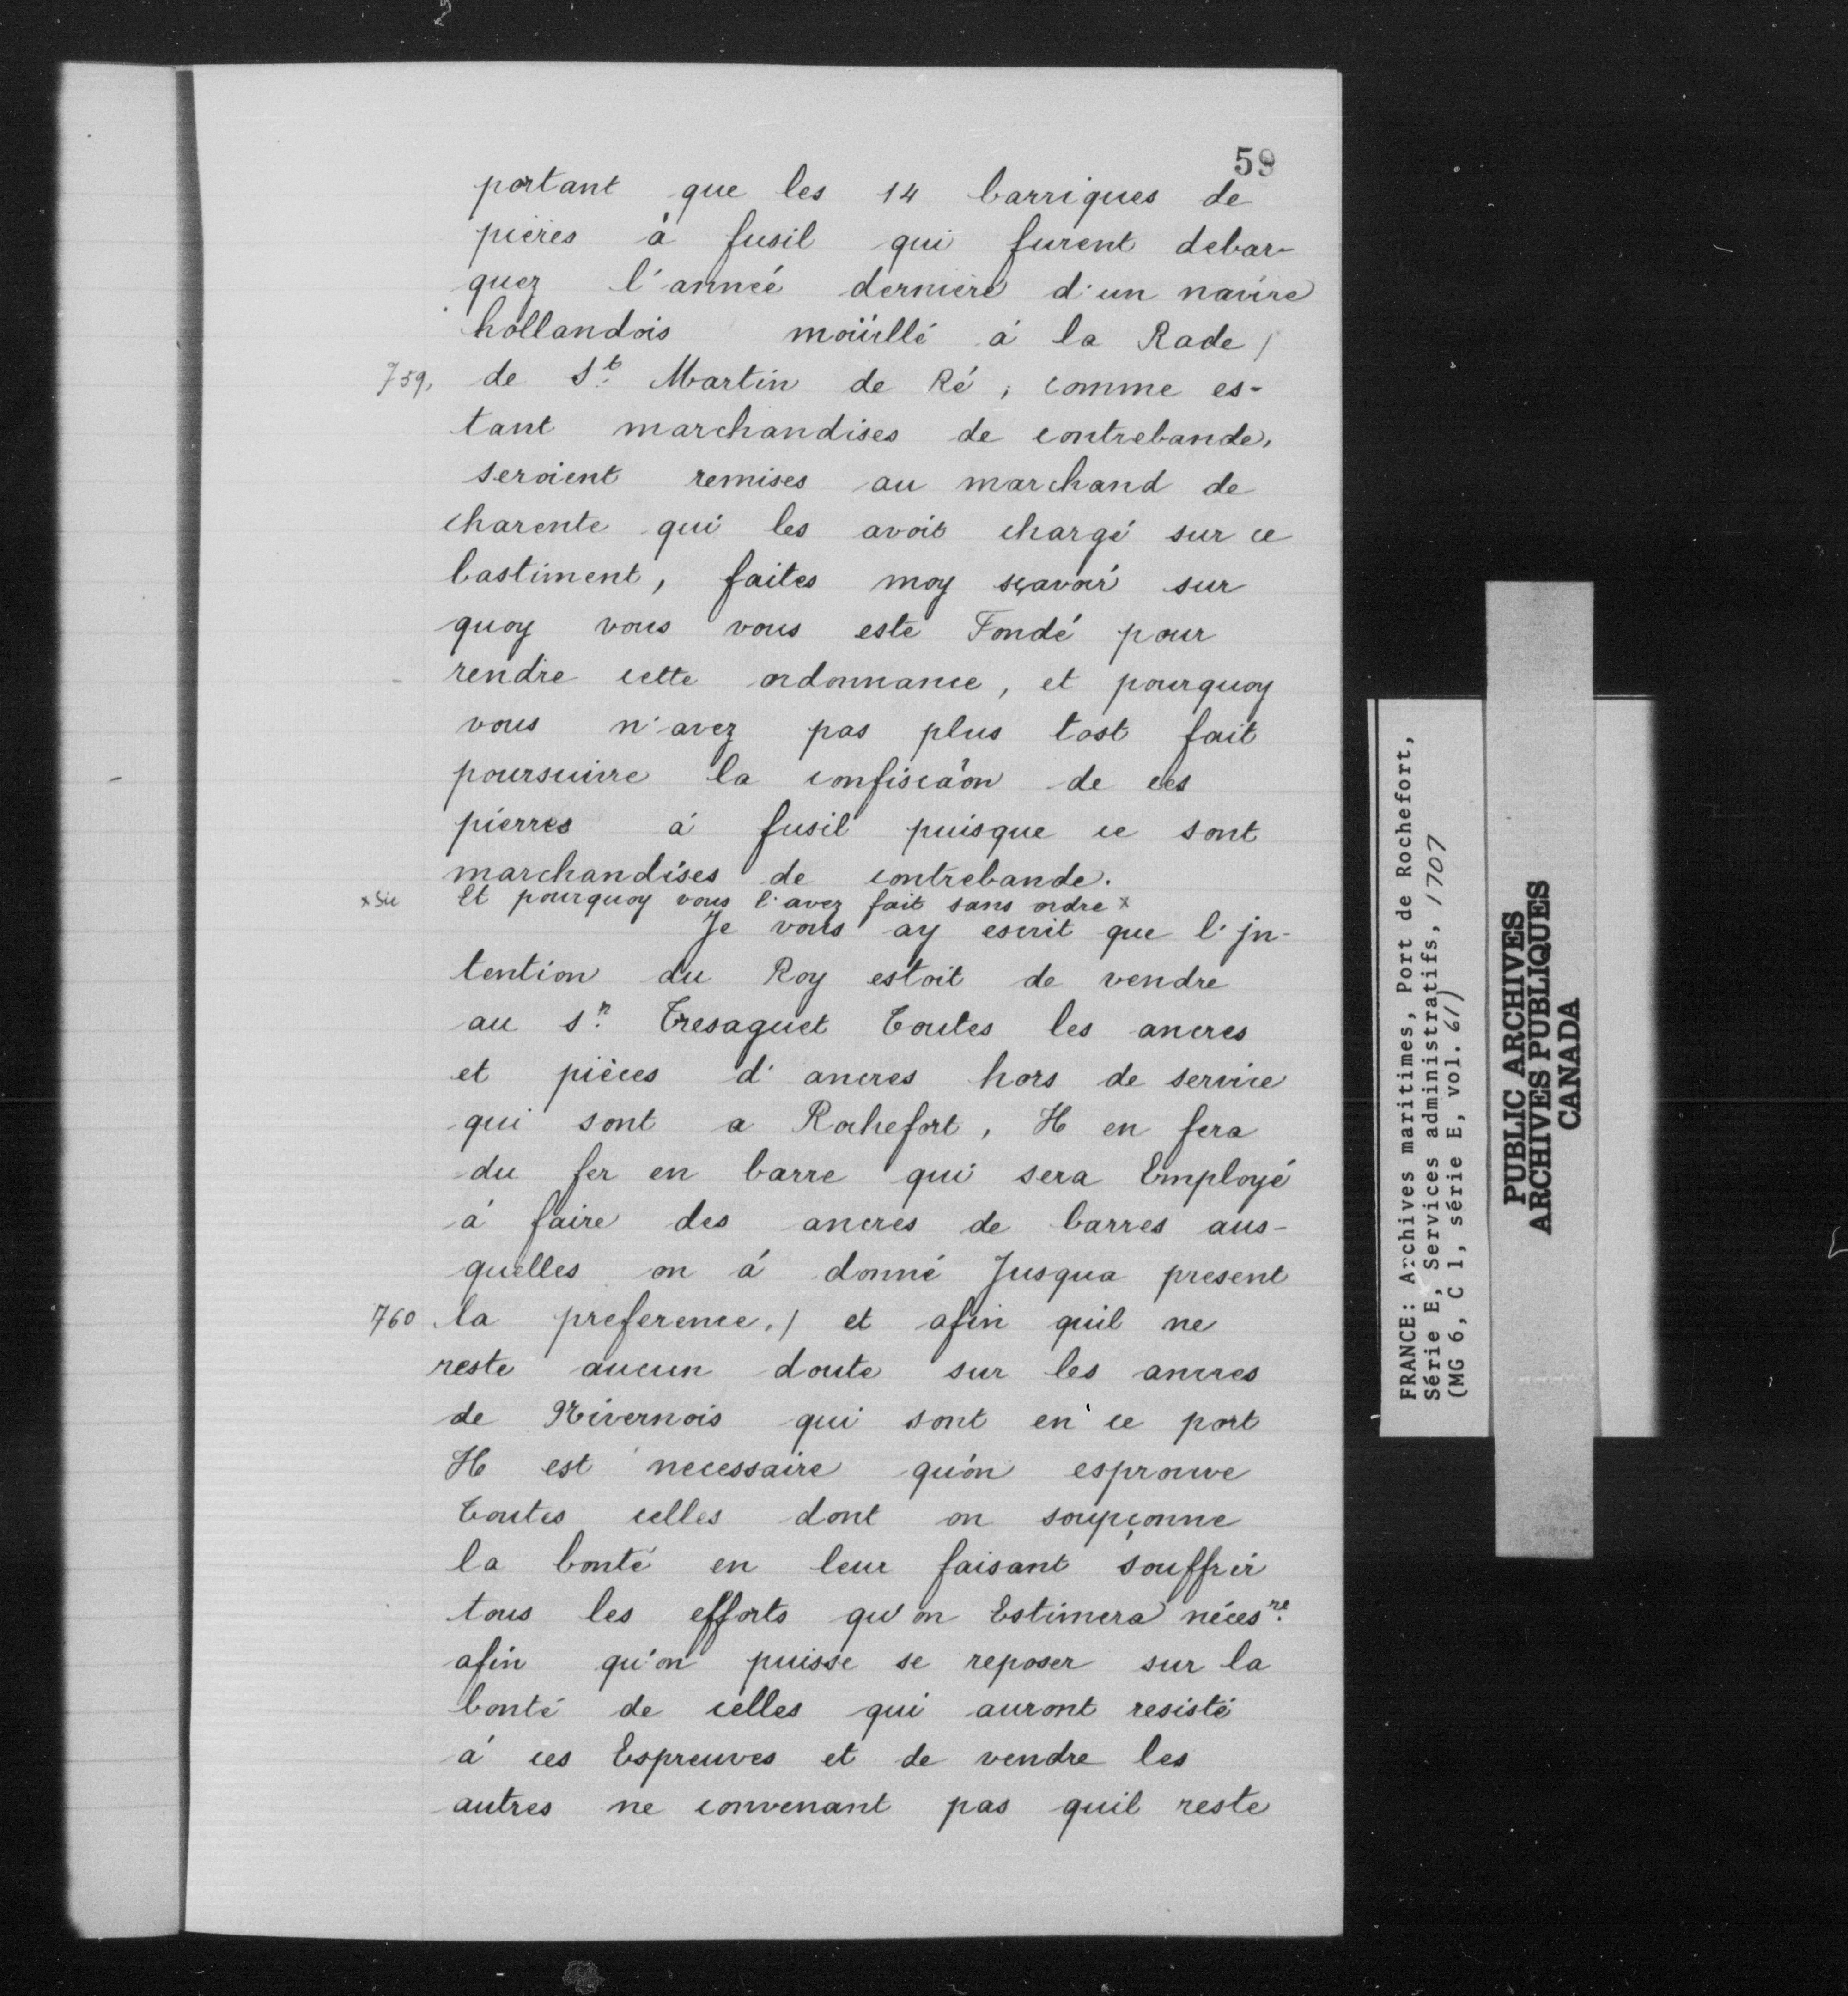 59
portant que les 14 barriques de
pieres à fusil qui furent debar-
quez l'année derniere d'un navire
hollandois moüillé à la Rade /
759, de St. Martin de Ré, comme es-
tant marchandises de contrebande,
seroient remises au marchand de
charente qui les avoit chargé sur ce
bastiment, faites moy sçavoir sur
quoy vous vous este Fondé pour
rendre cette ordonnance, et pourquoy
vous n'avez pas plus tost fait
poursuivre la confiscaon de ces
pierres à fusil puisque ce sont
marchandises de contrebande.
x Sic Et pourquoy vous l'avez fait sans ordre x
Je vous ay escrit que l'jn-
tention du Roy estoit de vendre
au Sr. Tresaguet Toutes les ancres
et pièces d'ancres hors de service
qui sont a Rochefort, Il en fera
du fer en barre qui sera Employé
à faire des ancres de barres aus-
quelles on à donné Jusqua present
760 la preference, / et afin quil ne
reste aucun doute sur les ancres
de Nivernois qui sont en ce port
Il est necessaire qu'on esprouve
Toutes celles dont on soupçonne
la bonté en leur faisant souffrir
tous les efforts qu'on Estimera nécesre.
afin qu'on puisse se reposer sur la
bonté de celles qui auront resisté
à ces Espreuves et de vendre les
autres ne convenant pas quil reste
FRANCE: Archives maritimes, Port de Rochefort,
Série E, Services administratifs, 1707
(MG 6, C 1, série E, vol. 61)
PUBLIC ARCHIVES
ARCHIVES PUBLIQUES
CANADA